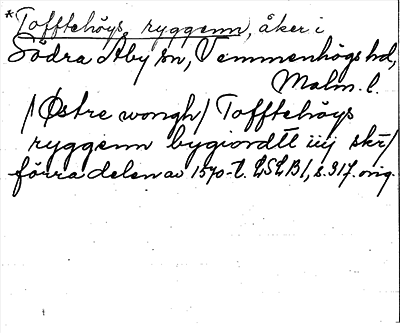 *Tofftehöys ryggenn, åker i
Södra Åby sn, Vemmenhögs hd,
Malm. l.
/Østre wongh/ Tofftehöys
ryggenn bygiordtt iiij skr/
förra delen av 1570-t. LSLB 1, s. 917. orig.